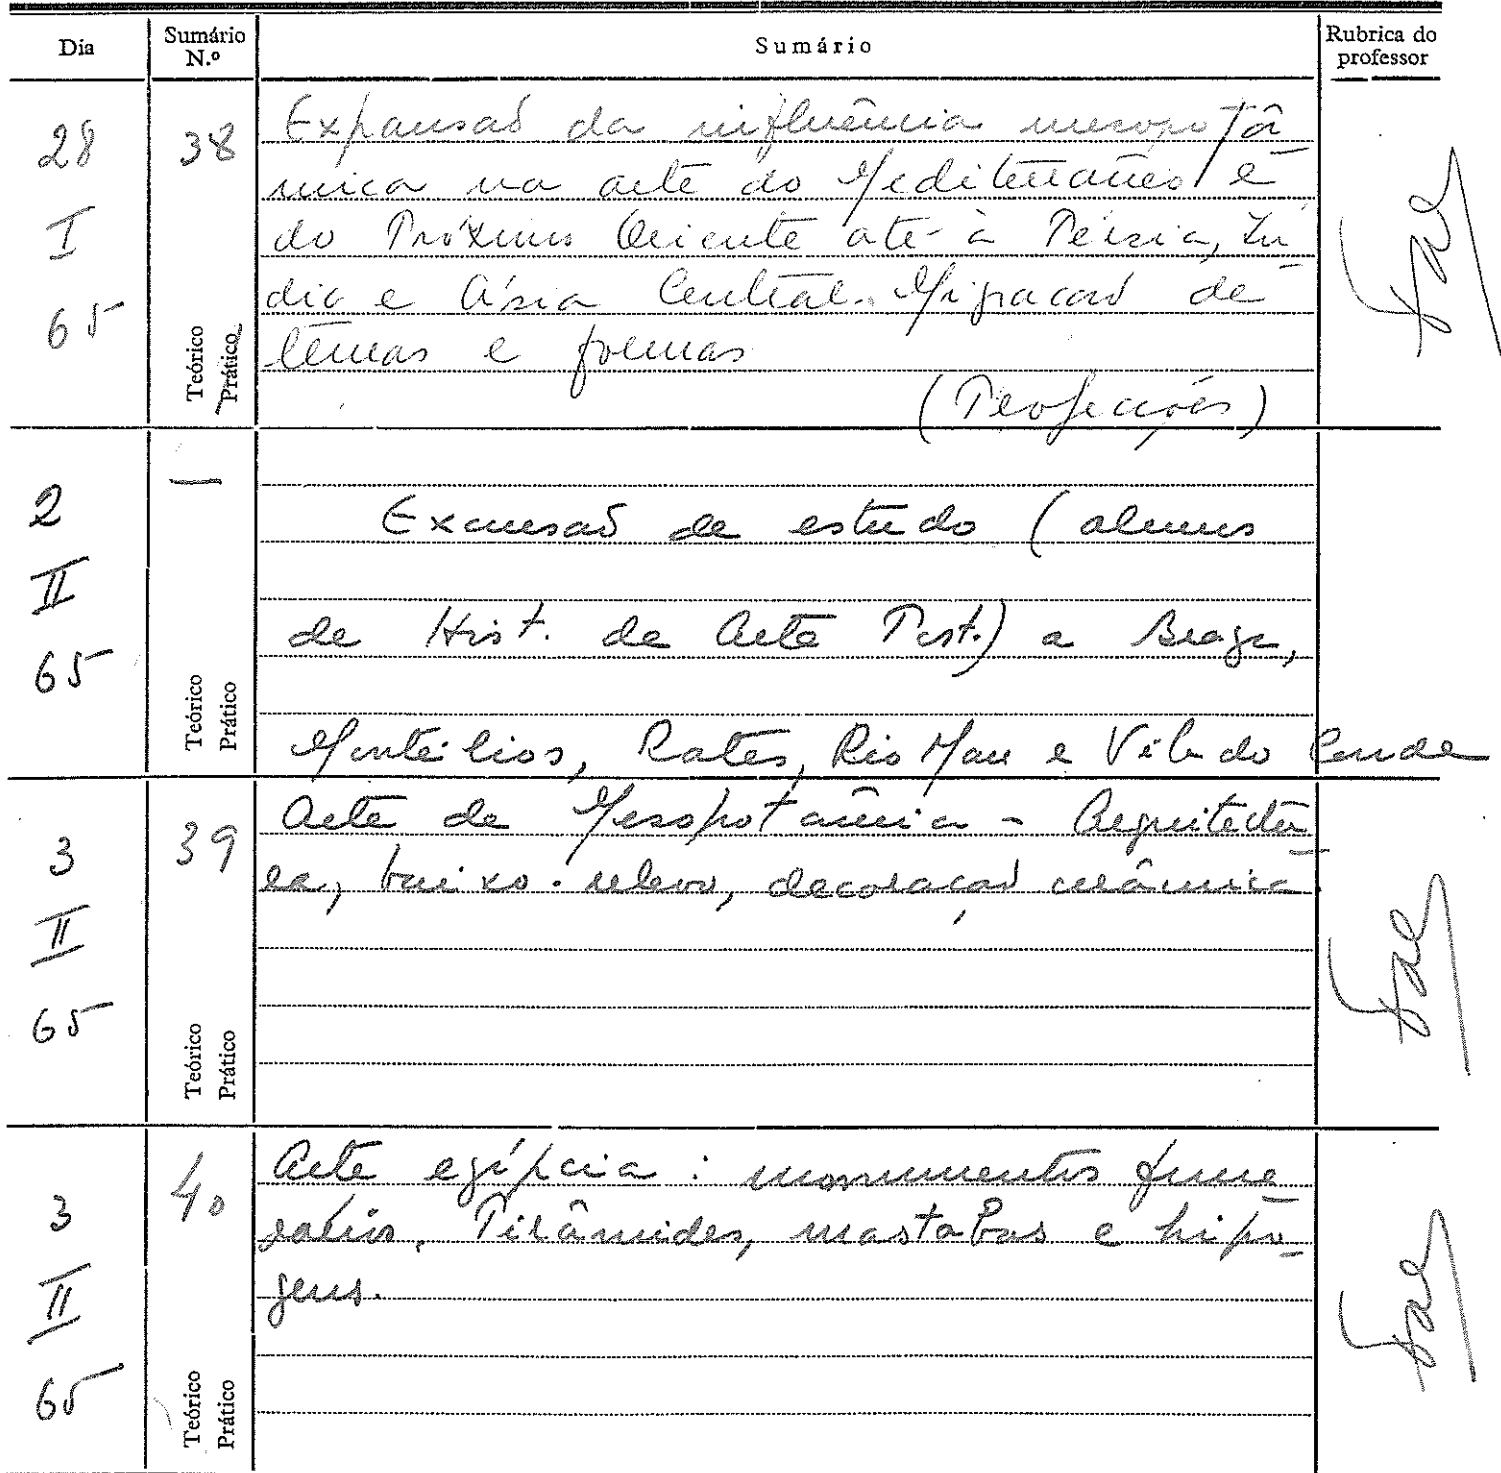 Dia Sumário N.º Sumário Rubrica do professor
28 I 65
38
Teórico
Prático
Expansaõ da influência mesopotâ
mica na arte do Mediterrâneo e
do Próximo Oriente até à Pérsia, Ín
dia e Ásia Central. Migraçaõ de
temas e formas
(Projecções)
2 II 65
—
Teórico
Prático
Excursaõ de estudo (alunos
de Hist. da Arte Port.) a Braga,
Montélios, Rates, Rio Mau e Vila do Conde
3 II 65
39
Teórico
Prático
Arte da Mesopotâmia - Arquitectu
ra, baixo-relevo, decoraçaõ cerâmica
3 II 65
40
Teórico
Prático
Arte egípcia: monumentos fune
rários. Pirâmides, mastabas e hipo-
geus.